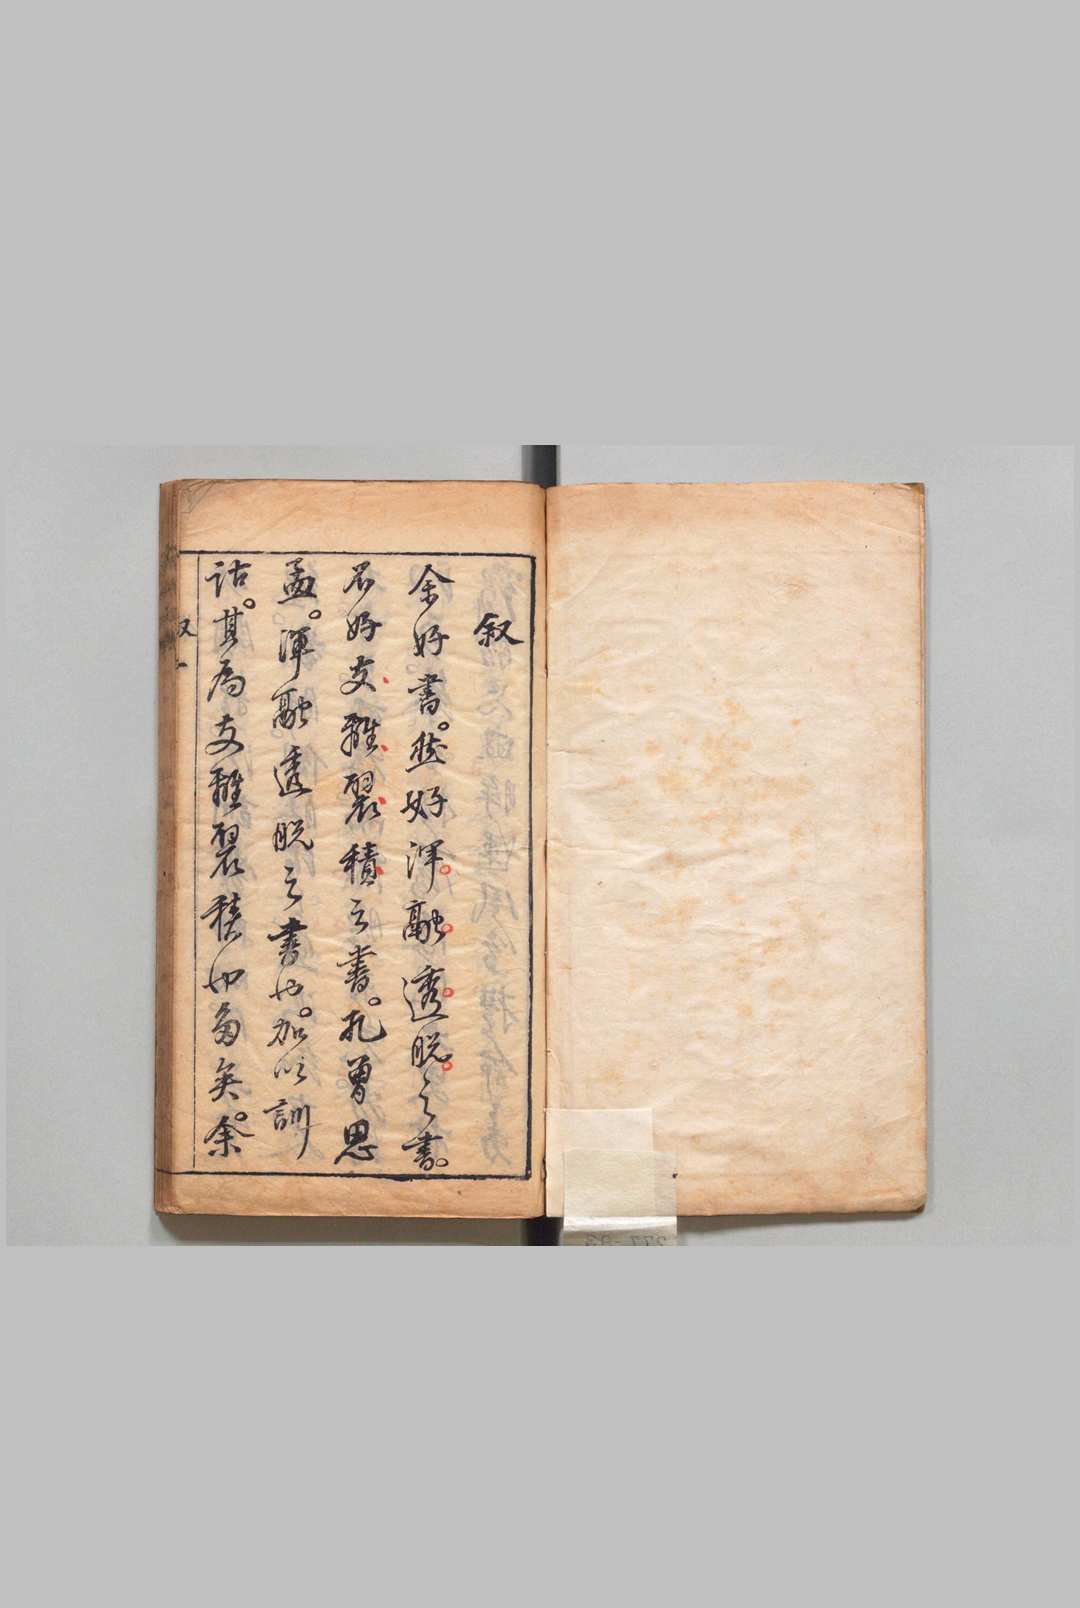 叙
余好書。然好渾融透脱之書。
不好支離襞積之書。孔曾思
孟。渾融透脱之書也。加以訓
詁。其為支離襞積也多矣。余
叙 一